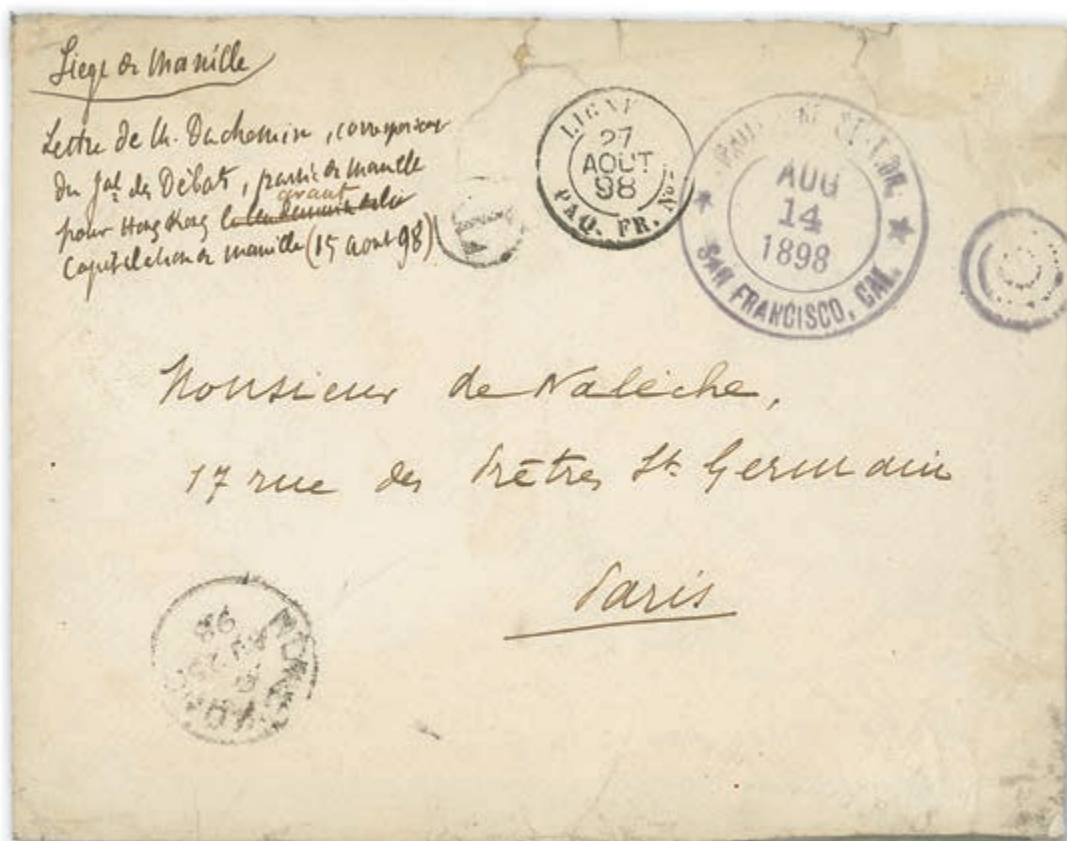 Siege de Manille
Lettre de M. Duchemin, correspondant
du Jal des Débats, partie de Manille
avant
pour Hong Kong le lendemain de la
Capitulation de Manille (15 aout 98)
LIGNE
27
AOUT
98
PAQ. FR. No
AUG
14
1898
SAN FRANCISCO, CAL.
Monsieur de Nalèche,
17 rue des Prêtres St. Germain
Paris
HONG KONG
98